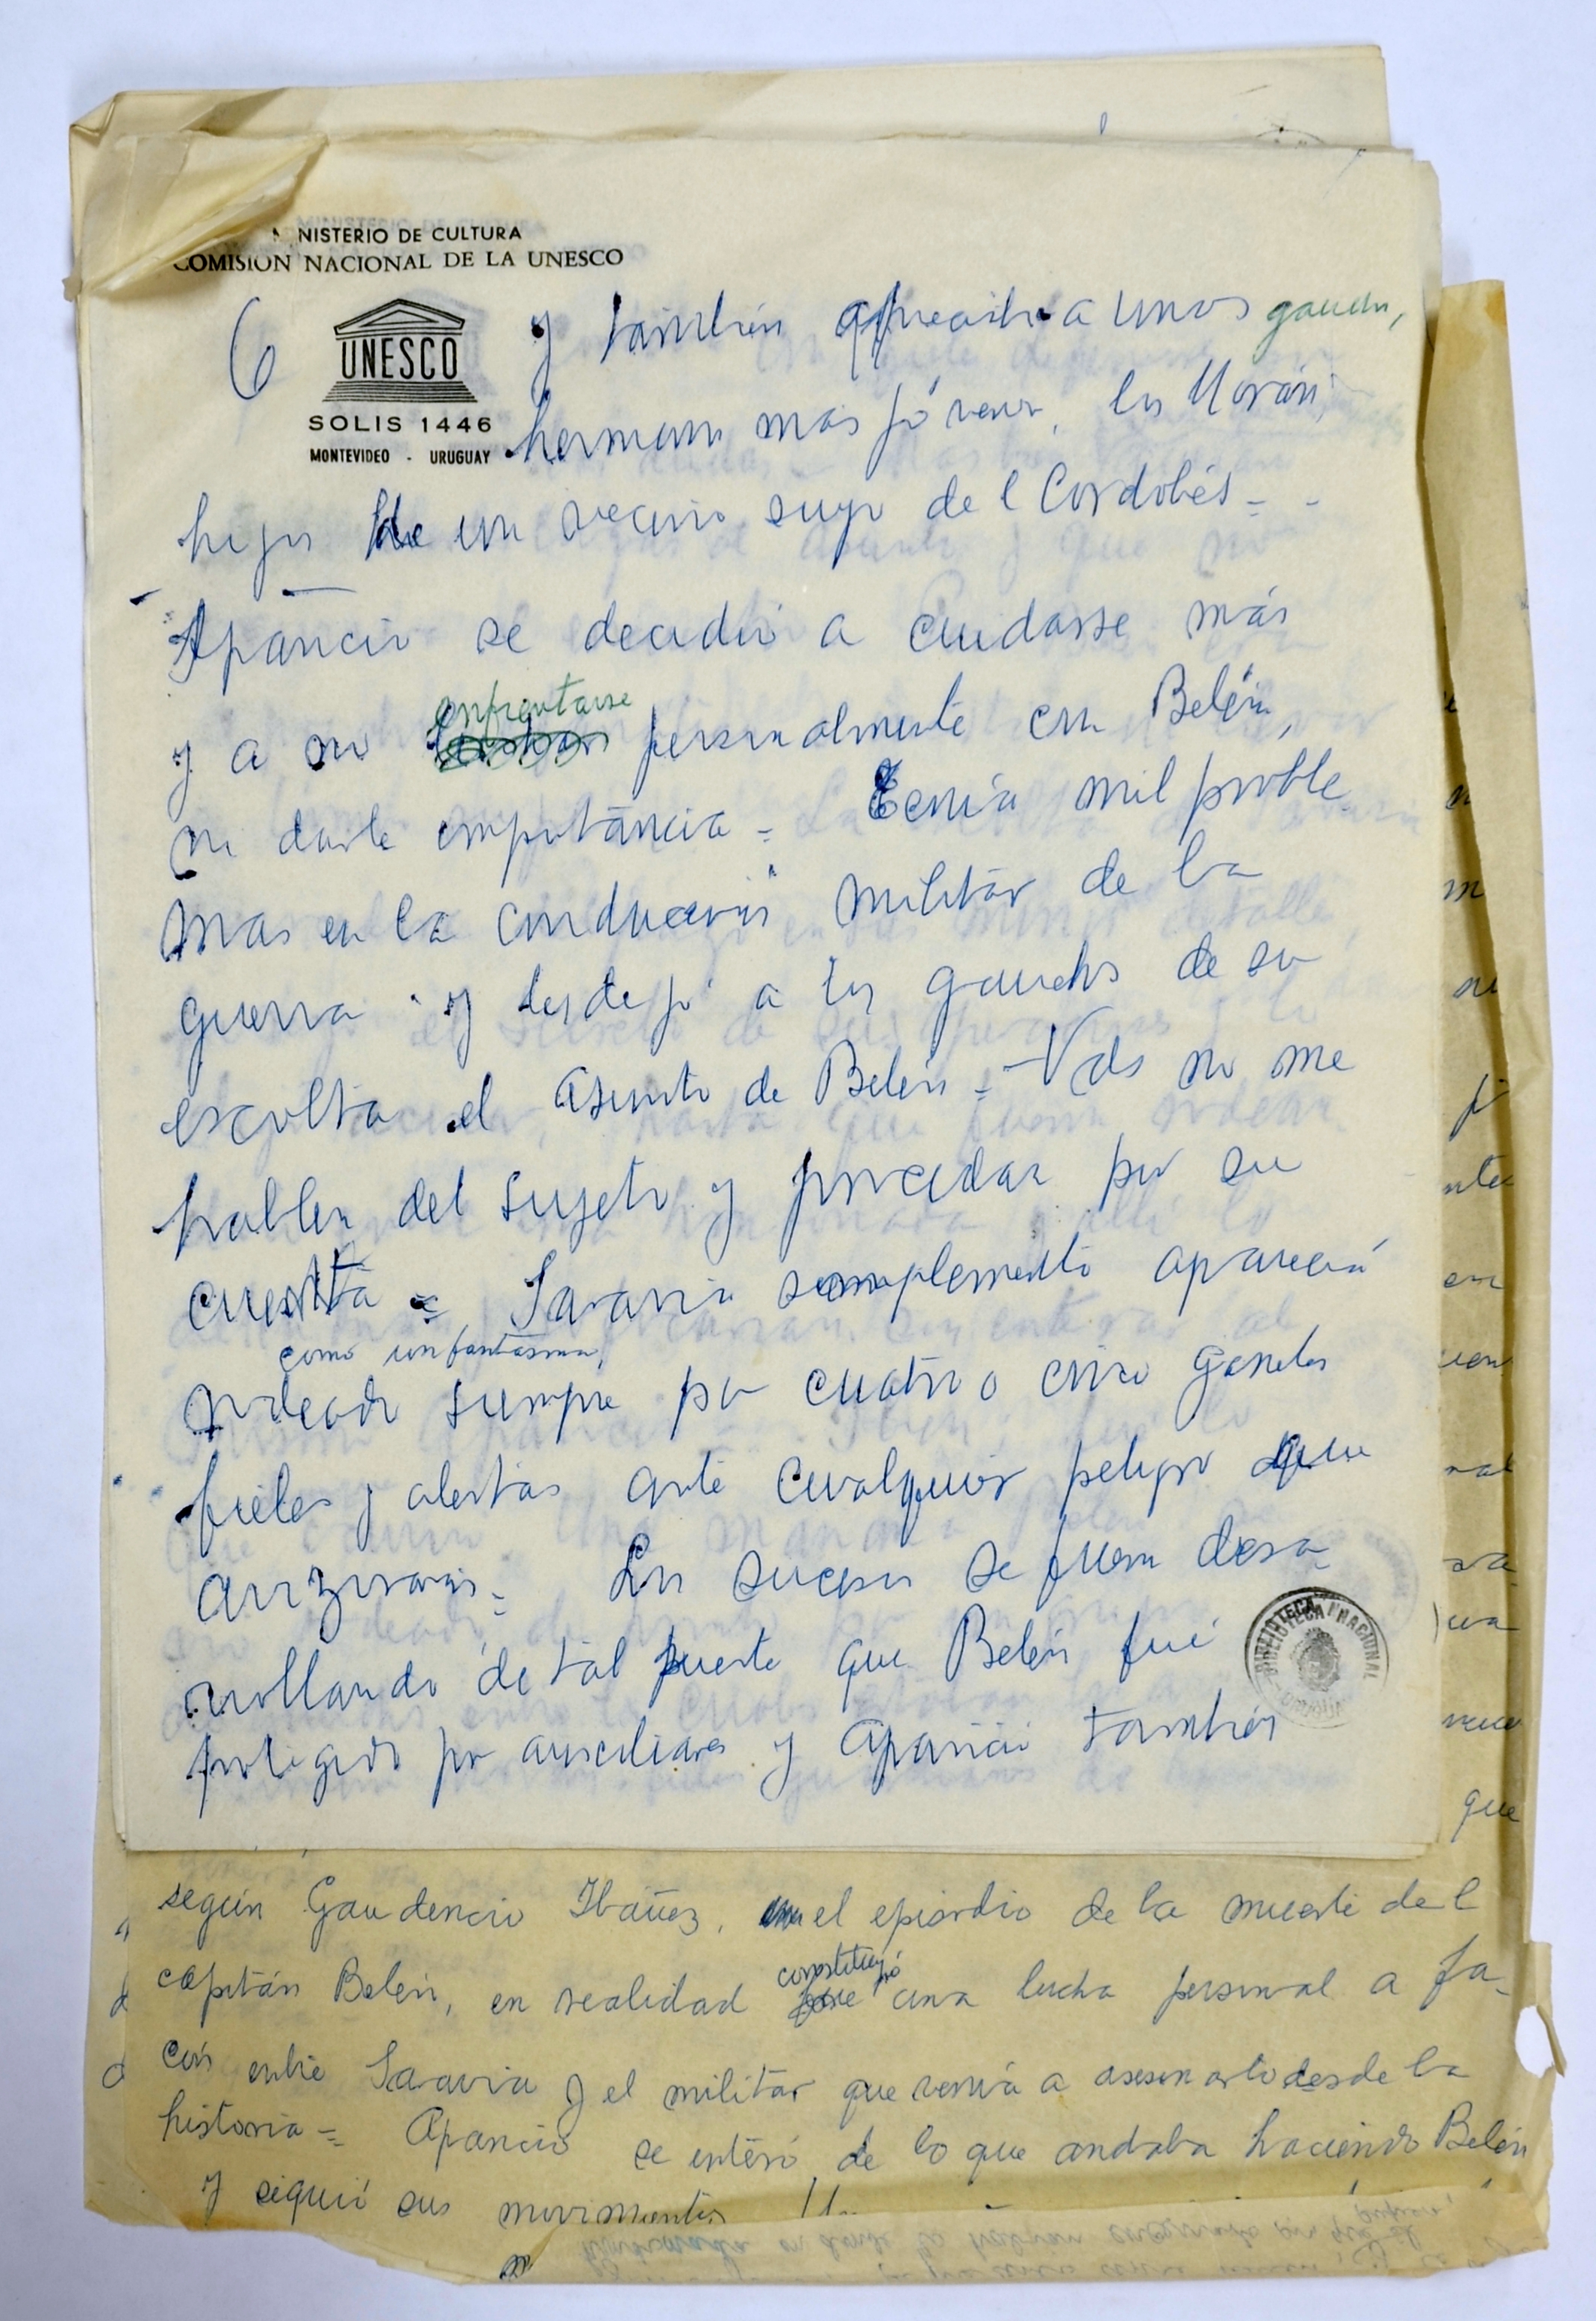 MINISTERIO DE CULTURA
COMISION NACIONAL DE LA UNESCO
6
UNESCO
SOLIS 1446
MONTEVIDEO - URUGUAY
y también a unos gauchos,
hermanos más jóvenes, los Morán,
hijos de un vecino suyo del Cordobés =
Aparicio se decidió a cuidarse más
enfrentarse
y a no personalmente con Belén,
ni darle importancia = Tenía mil proble
mas en la conducción militar de la
guerra y les dejó a los gauchos de su
escolta el asunto de Belén = Vds no me
hablen del sujeto y procedan por su
cuenta = Saravia simplemente aparecía
como un fantasma,
rodeado siempre por cuatro o cinco jinetes
fieles y alertas ante cualquier peligro que
avizoraran = Los sucesos se fueron desa
rrollando de tal suerte que Belén fué
protegido por auxiliares y Aparicio también
BIBLIOTECA NACIONAL
según Gaudencio Ibáñez, en el episodio de la muerte del
constituyó
capitán Belén, en realidad una lucha personal a fa-
cón entre Saravia y el militar que venía a asesinarlo desde la
historia = Aparicio se enteró de lo que andaba haciendo Belén
y siguió sus movimientos
que